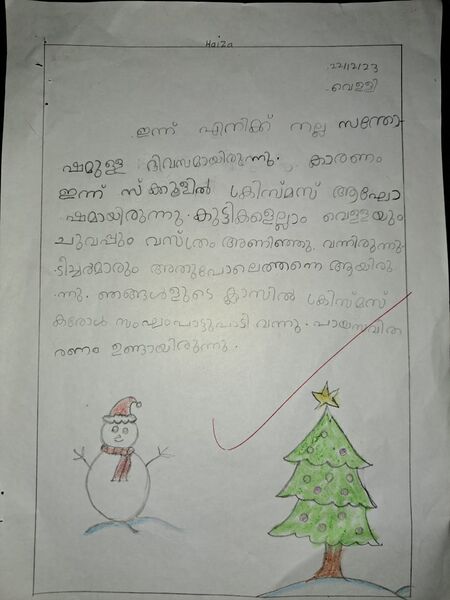 Haiza
22/12/23
വെള്ളി
ഇന്ന് എനിക്ക് നല്ല സന്തോ-
ഷമുള്ള ദിവസമായിരുന്നു. കാരണം
ഇന്ന് സ്ക്കൂളിൽ ക്രിസ്മസ് ആഘോ
ഷമായിരുന്നു. കുട്ടികളെല്ലാം വെള്ളയും
ചുവപ്പും വസ്ത്രം അണിഞ്ഞു വന്നിരുന്നു.
ടീച്ചർമാരും അതുപോലെത്തന്നെ ആയിരു
ന്നു. ഞങ്ങൾളുടെ ക്ലാസിൽ ക്രിസ്മസ്
കരോൾ സംഘം പാട്ടുപാടി വന്നു. പായസവിത
രണം ഉണ്ടായിരുന്നു.